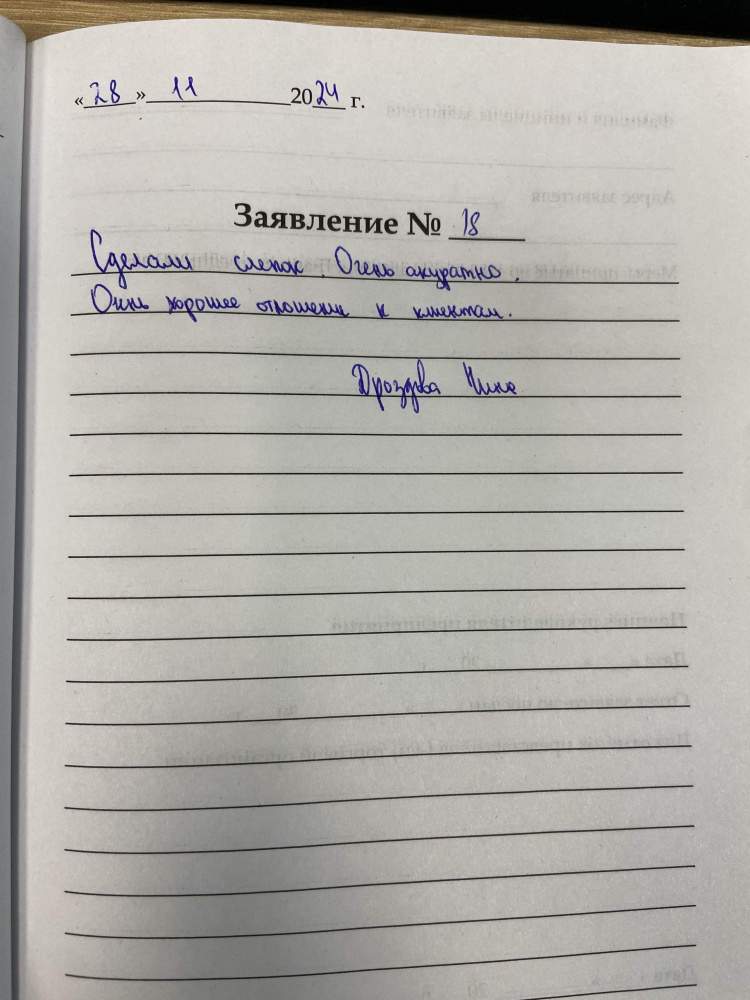 «28» 11 2024 г.
Заявление № 18
Сделали слепок. Очень акуратно.
Очень хорошее отношение к клиентам.
Дроздова Нина